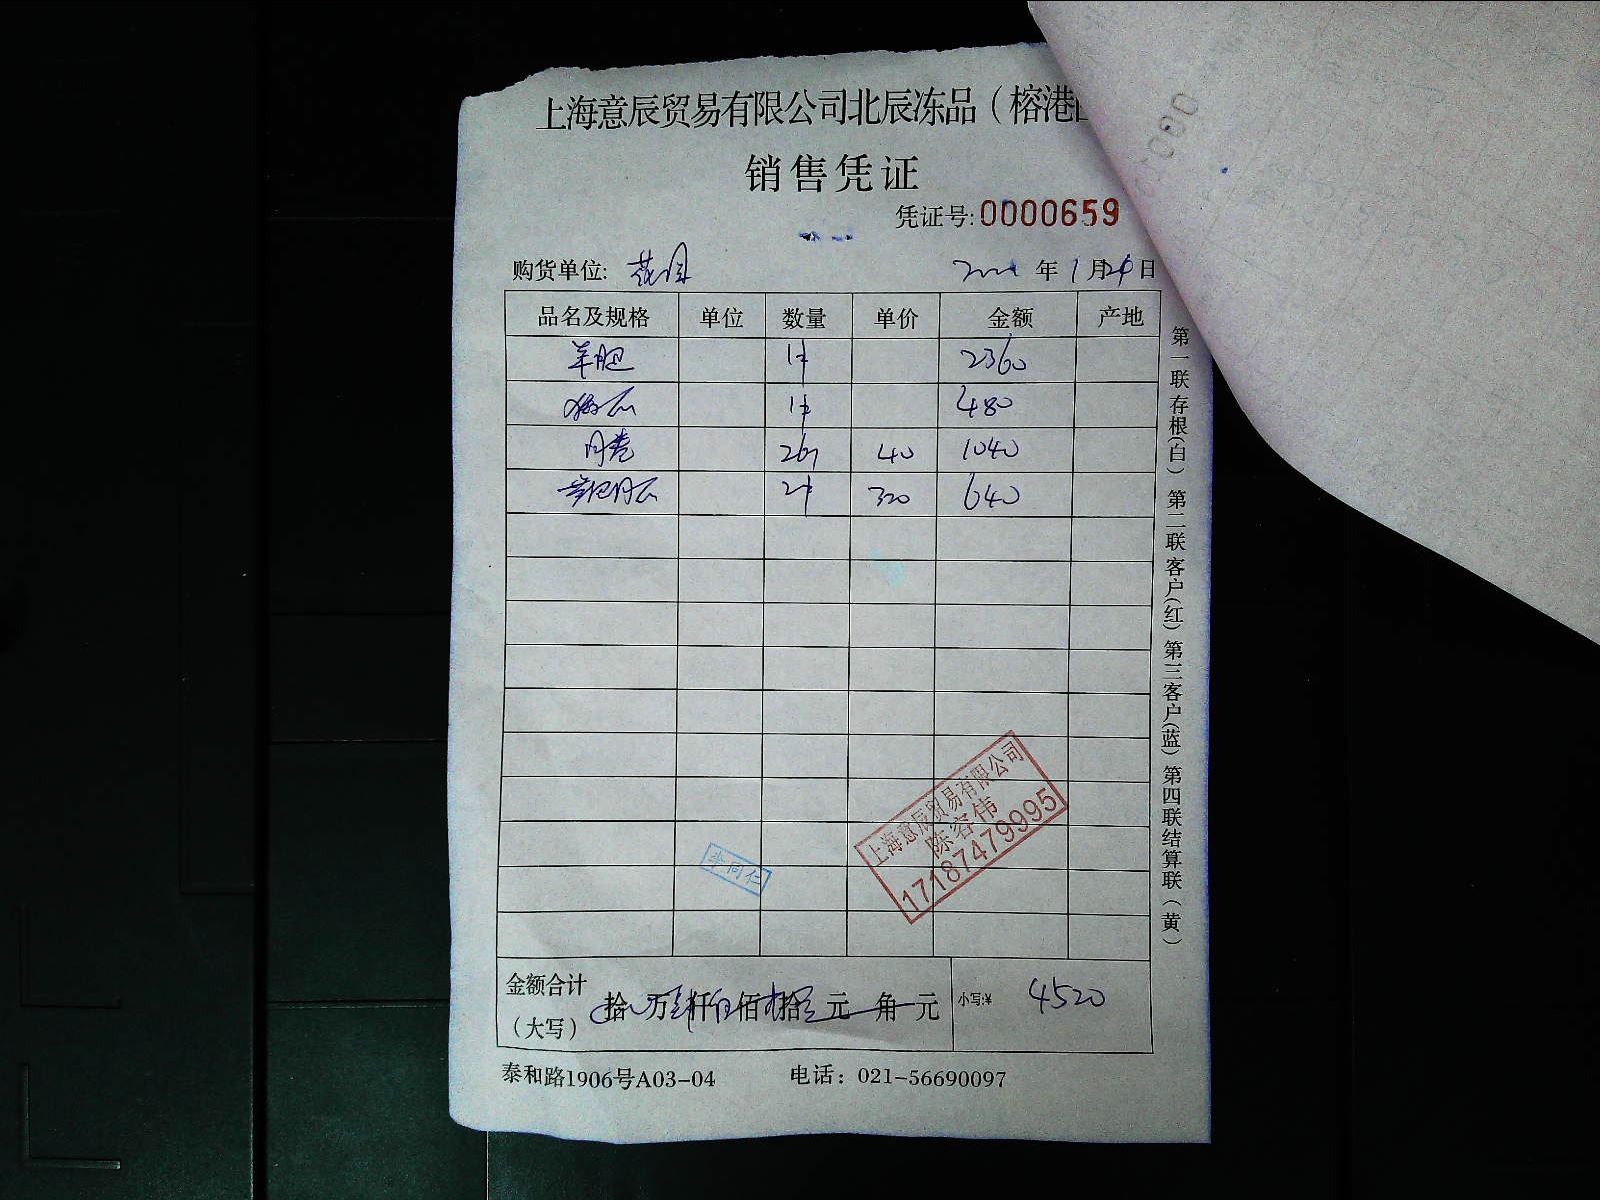 上海意辰贸易有限公司北辰冻品（榕港
销售凭证
凭证号:0000659
购货单位: 年 1 月 24 日
品名及规格 单位 数量 单价 金额 产地
羊肥 1件 2360
1件 480
26 40 1040
2件 320 640
上海意辰贸易有限公司
陈容伟
17187479995
李同仁
金额合计（大写） 拾 万 仟 佰 拾 元 角 元 小写:¥ 4520
泰和路1906号A03-04 电话：021-56690097
第一联存根(白) 第二联客户(红) 第三客户(蓝) 第四联结算联(黄)